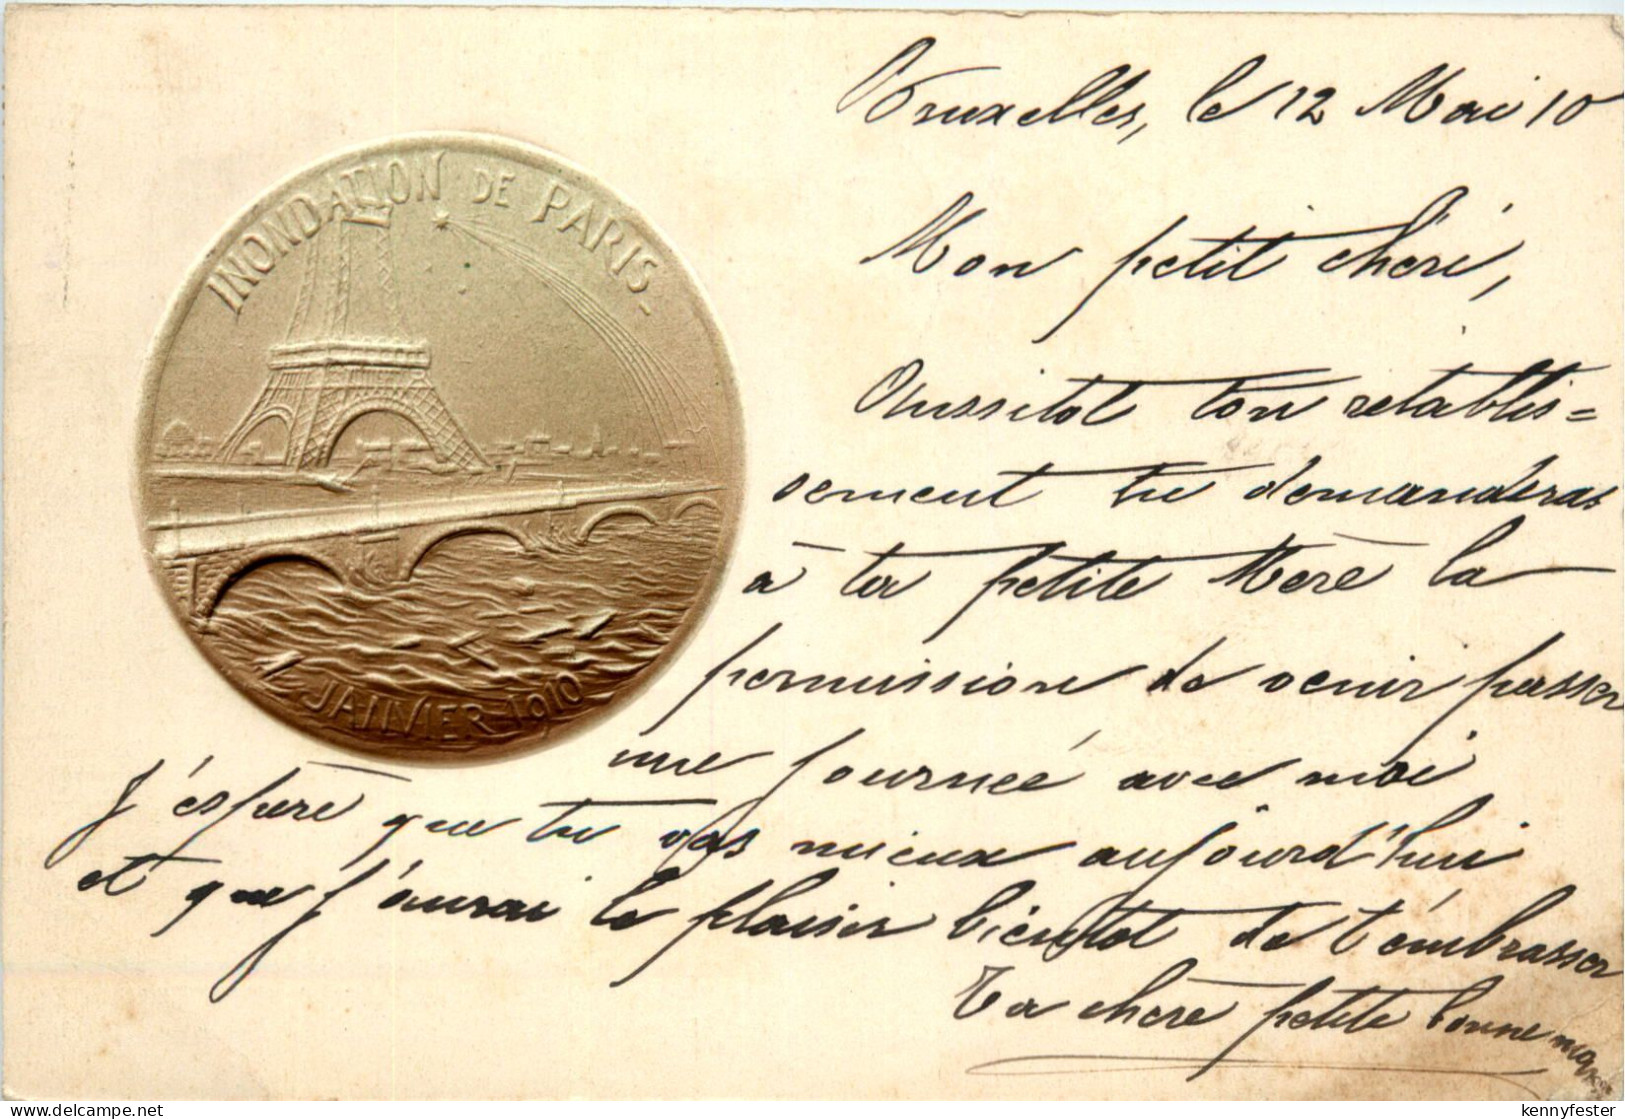 INONDATION DE PARIS
JANVIER 1910
Bruxelles, le 12 Mai 10
Mon petit chéri,
Aussitot ton retablis=
sement tu demanderas
à ta petite Mère la
permission de venir passer
une journée avec moi
J'éspère que tu vas mieux aujourd'hui
et que j'aurai le plaisir bientot de t'embrasser
Ta chère petite bonne
kennyfester